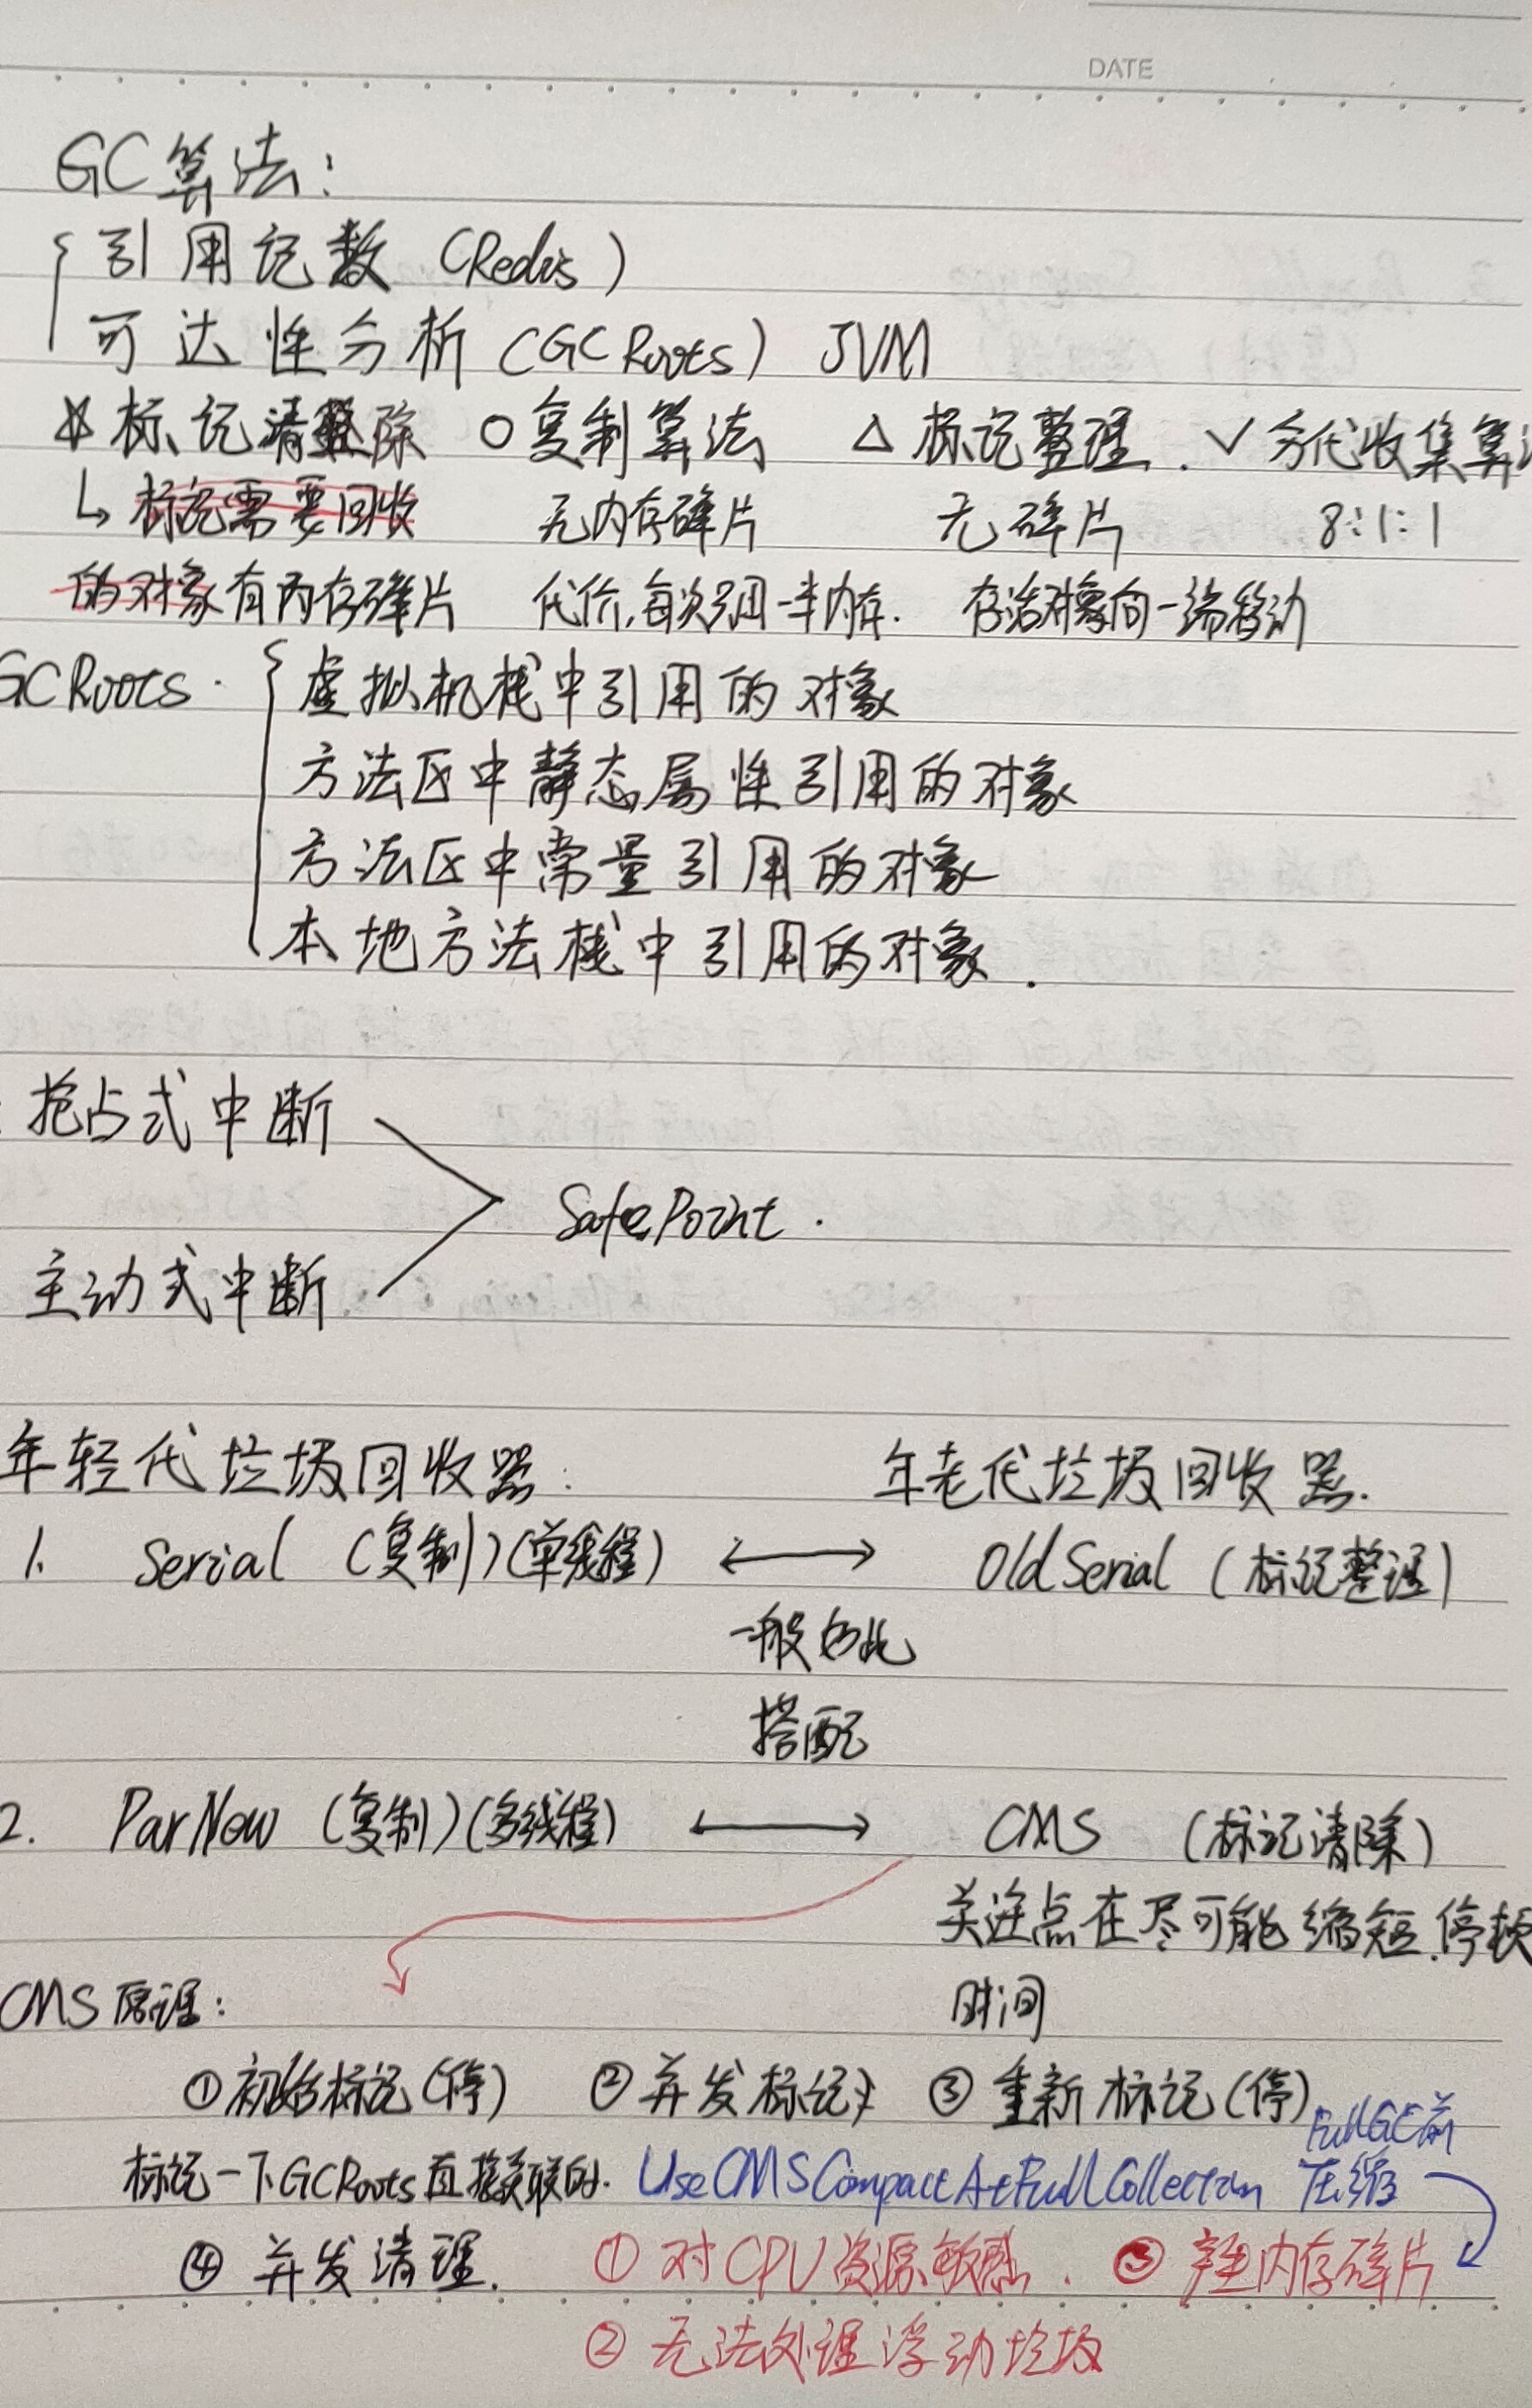 DATE
GC算法:
引用记数 (Redis)
可达性分析 (GC Roots) JVM
标记清除 ○复制算法 △标记整理. ✓分代收集算
↳ 标记需要回收 无内存碎片 无碎片 8:1:1
的对象有内存碎片 代价,每次只用一半内存. 存活对象向一端移动
GC Roots. 虚拟机栈中引用的对象
方法区中静态属性引用的对象
方法区中常量引用的对象
本地方法栈中引用的对象.
抢占式中断
SafePoint.
主动式中断.
年轻代垃圾回收器: 年老代垃圾回收器.
1. Serial (复制)(单线程) ⟷ Old Serial (标记整理)
一般如此
搭配
2. ParNew (复制)(多线程) ⟷ CMS (标记清除)
关注点在尽可能缩短停顿
时间
CMS原理:
①初始标记(停) ②并发标记 ③重新标记(停)
FullGC前
标记一下GCRoots直接关联的. UseCMSCompactAtFullCollection 压缩
④并发清理. ①对CPU资源敏感. ③产生内存碎片
②无法处理浮动垃圾